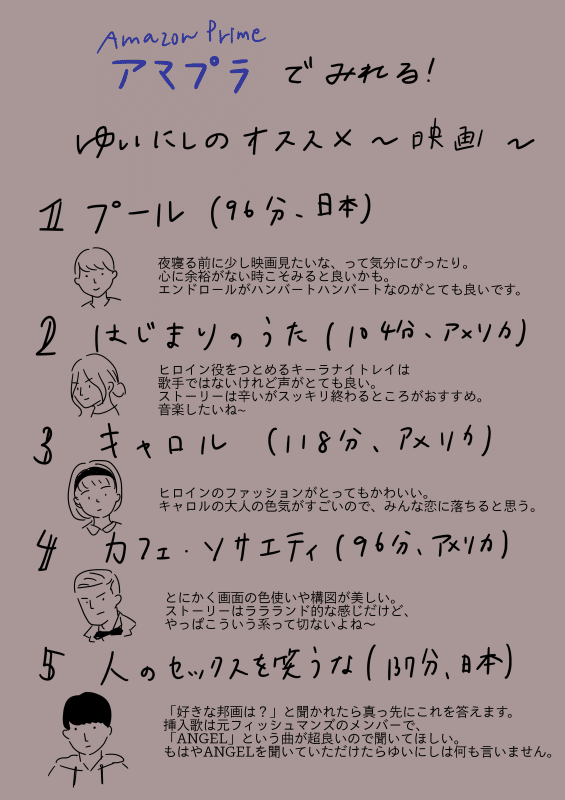 Amazon Prime
アマプラでみれる!
ゆいにしのオススメ〜映画〜
1 プール(96分、日本)
夜寝る前に少し映画見たいな、って気分にぴったり。
心に余裕がない時こそみると良いかも。
エンドロールがハンバートハンバートなのがとても良いです。
2 はじまりのうた(104分、アメリカ)
ヒロイン役をつとめるキーラナイトレイは
歌手ではないけれど声がとても良い。
ストーリーは辛いがスッキリ終わるところがおすすめ。
音楽したいね~
3 キャロル(118分、アメリカ)
ヒロインのファッションがとってもかわいい。
キャロルの大人の色気がすごいので、みんな恋に落ちると思う。
4 カフェ・ソサエティ(96分、アメリカ)
とにかく画面の色使いや構図が美しい。
ストーリーはララランド的な感じだけど、
やっぱこういう系って切ないよね〜
5 人のセックスを笑うな(137分、日本)
「好きな邦画は？」と聞かれたら真っ先にこれを答えます。
挿入歌は元フィッシュマンズのメンバーで、
「ANGEL」という曲が超良いので聞いてほしい。
もはやANGELを聞いていただけたらゆいにしは何も言いません。